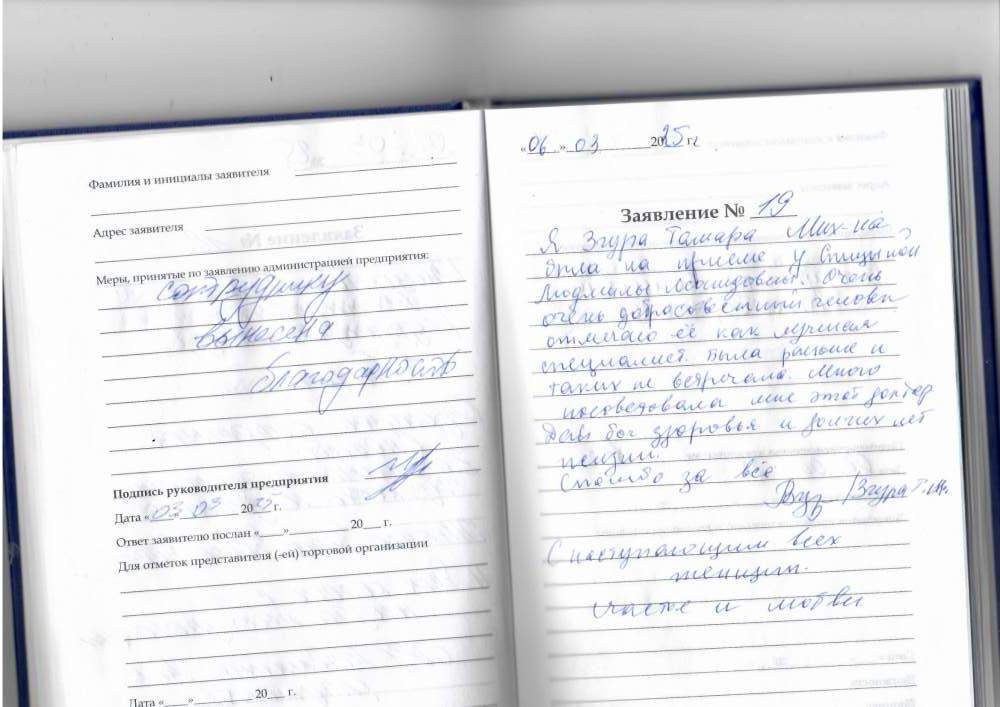 Фамилия и инициалы заявителя
Адрес заявителя
Меры, принятые по заявлению администрацией предприятия:
сотруднику
вынесена
благодарность
Подпись руководителя предприятия
Дата «03» 03 2025 г.
Ответ заявителю послан «___» 20___ г.
Для отметок представителя (-ей) торговой организации
Дата «___» 20___ г.
«06» 03 2025 г.
Заявление № 19
Я Згура Тамара Мих-на
была на приеме у Спицыной
Людмилы Леонидовны. Очень
очень добросовестный человек
отмечаю её как лучший
специалист. Была раньше и
таких не встречала. Много
посоветовала мне этот доктор
Дай бог здоровья и долгих лет
жизни.
Спасибо за всё
/Згура Т.М.
С наступающим всех
женщин.
Счастья и любви